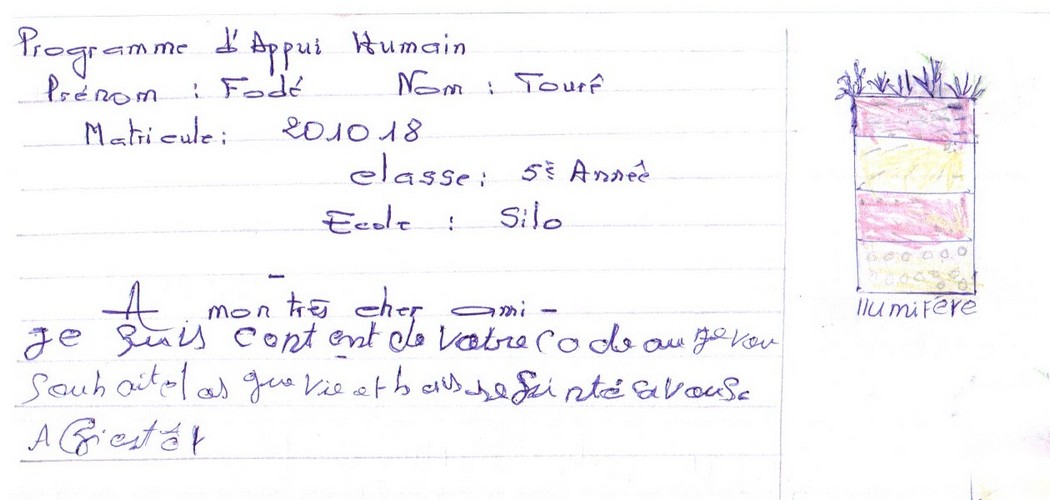 Programme d'Appui Humain
Prénom : Fodé Nom : Tourê
Matricule : 201018
classe : 5è Annêê
Ecole : Silo
A mon très cher ami -
je suis content de votre codeau je vou
souhaite las gue vie et
A Bientôt
Humifère